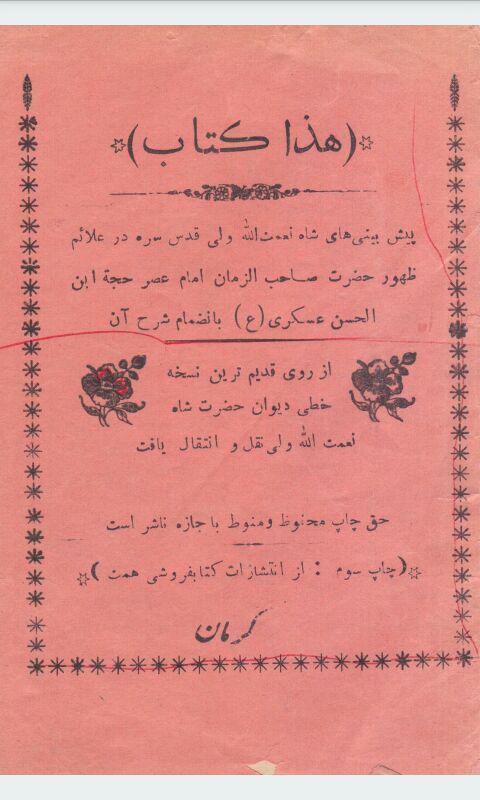 (هذا کتاب)
پیش بینی‌های شاه نعمت‌الله ولی قدس سره در علائم
ظهور حضرت صاحب الزمان امام عصر حجة ابن
الحسن عسکری (ع) بانضمام شرح آن
از روی قدیم ترین نسخه
خطی دیوان حضرت شاه
نعمت الله ولی نقل و انتقال یافت
حق چاپ محفوظ و منوط باجازه ناشر است
(چاپ سوم : از انتشارات کتابفروشی همت)
کرمان